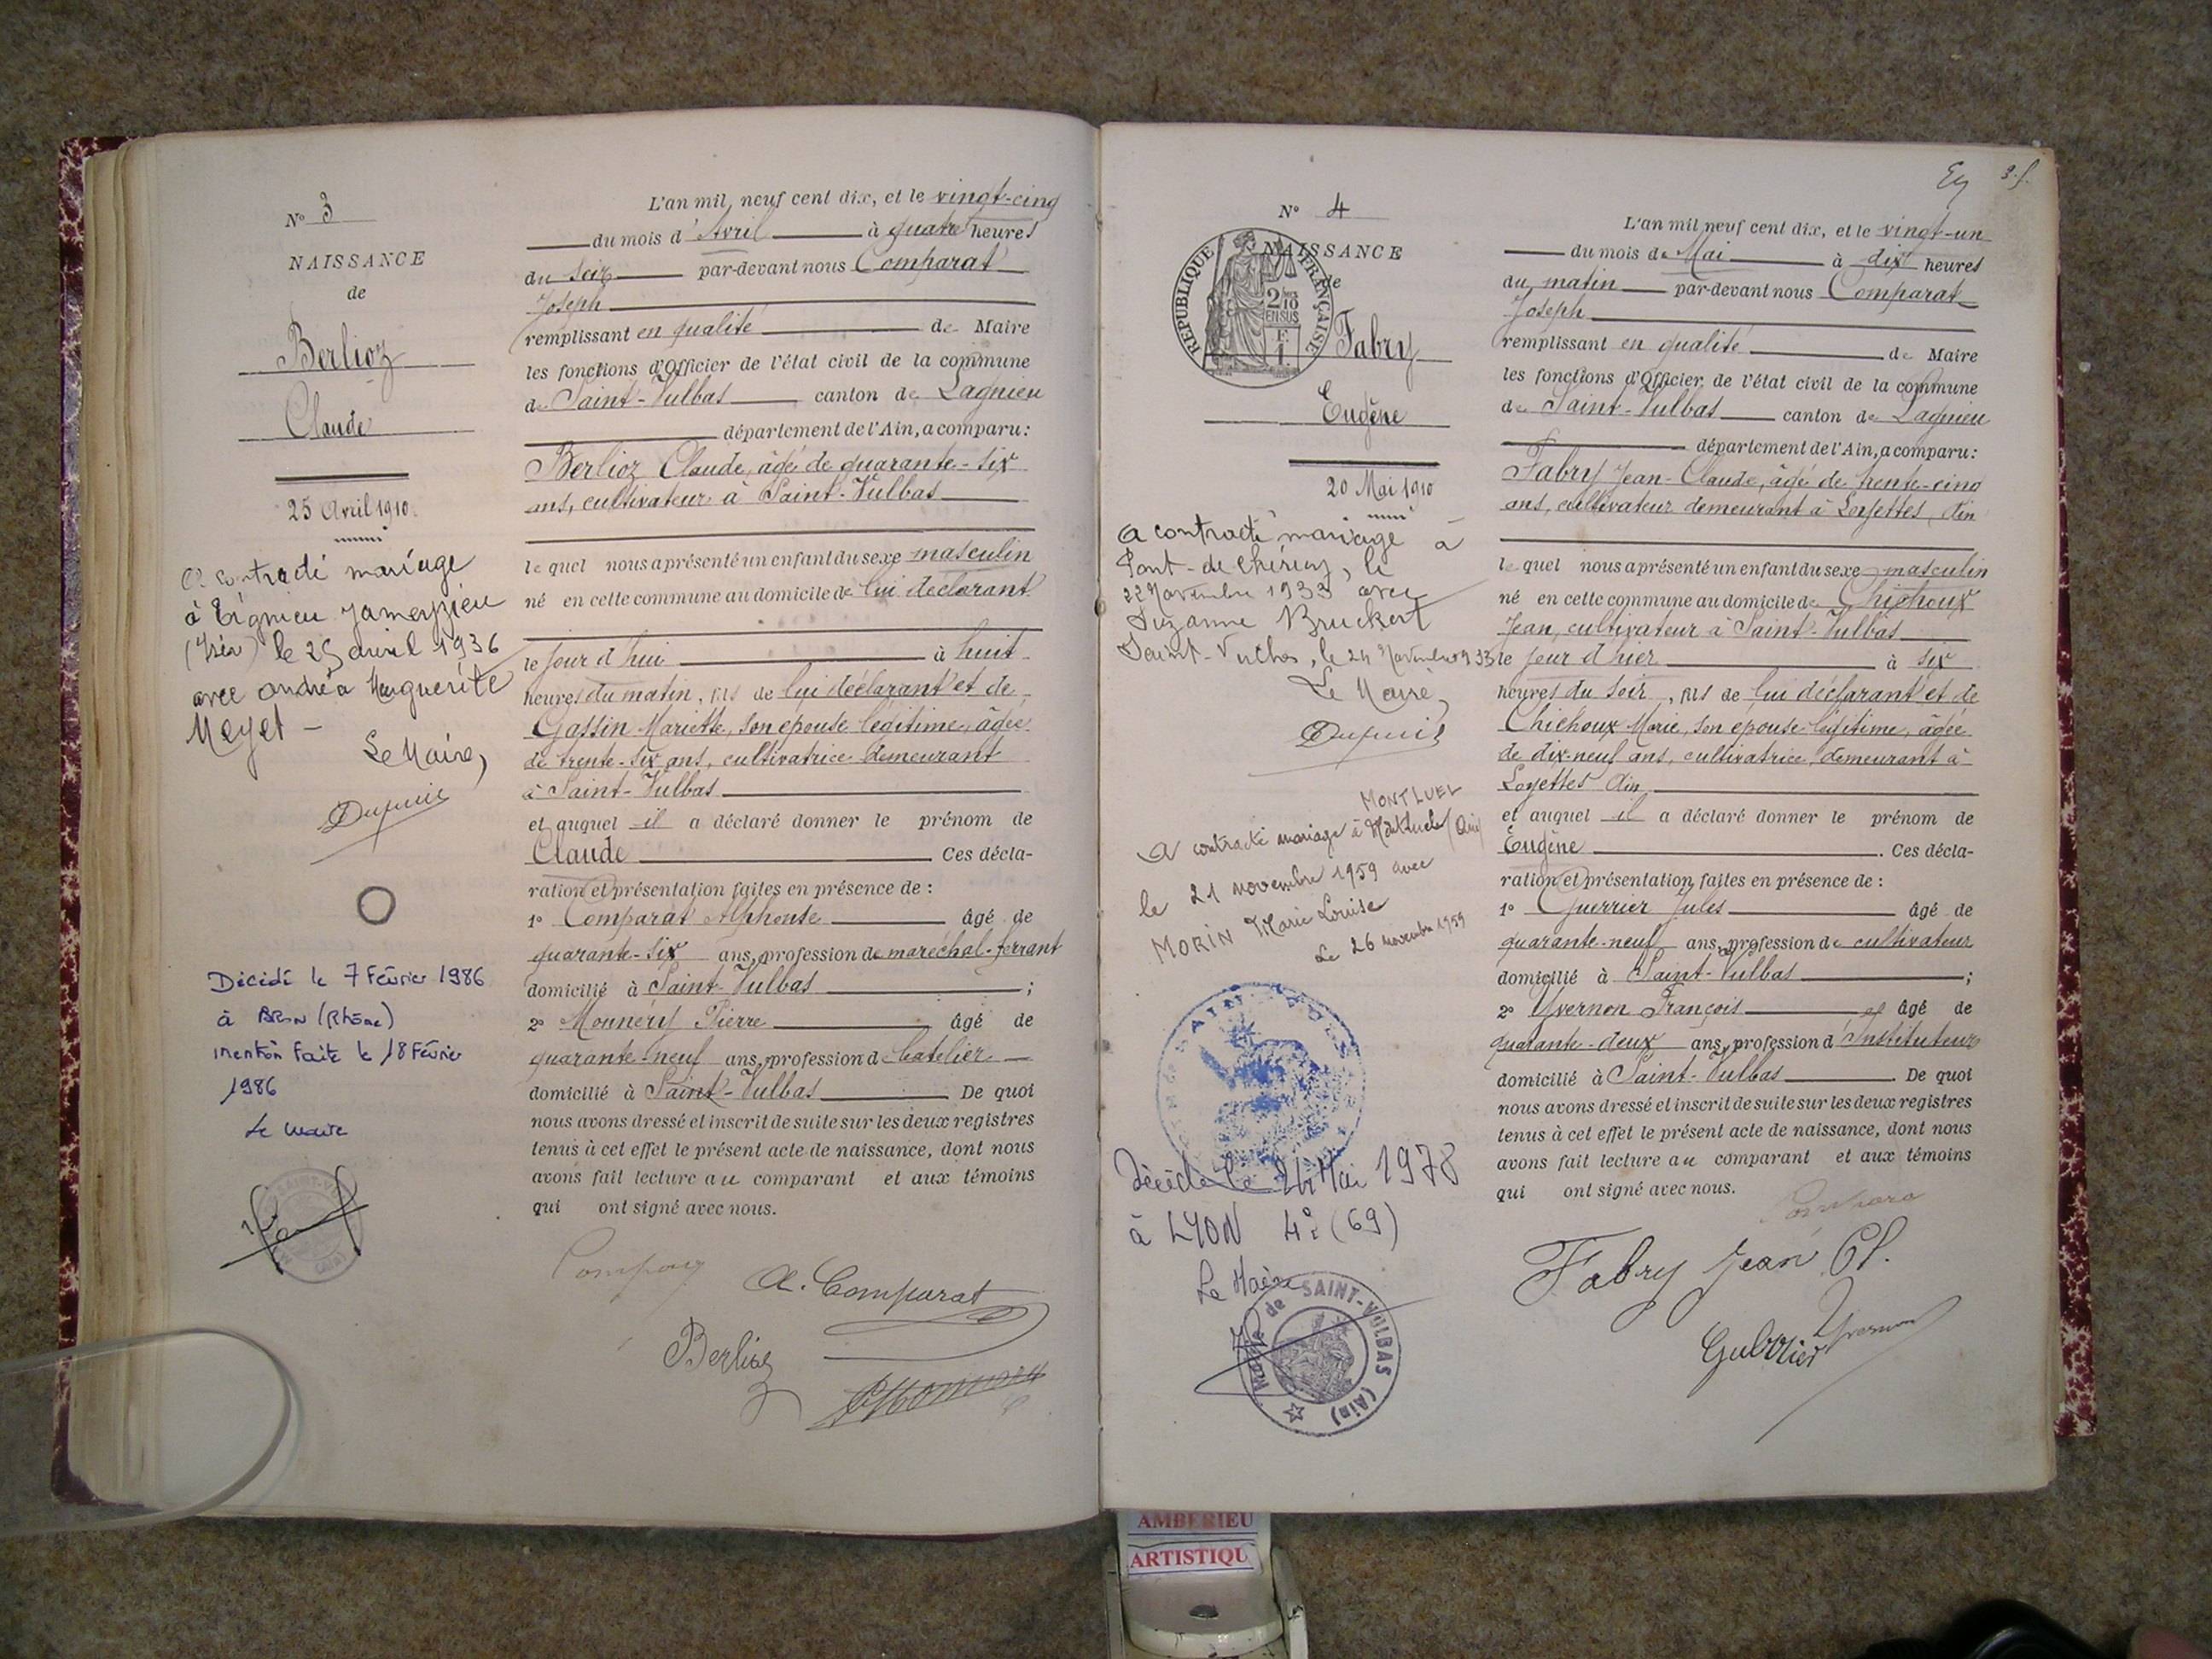 N° 3
NAISSANCE
de
Berlioz
Claude
25 Avril 1910
A contracté mariage
à Tignieu Jameyzieu
(Isère) le 25 avril 1936
avec Andréa Marguerite
Meyet -
Le Maire,
Dupuis
Décédé le 7 Février 1986
à BRON (Rhône)
mention faite le 18 Février
1986
Le Maire
L'an mil neuf cent dix, et le vingt-cinq
du mois d'Avril à quatre heures
du soir par-devant nous Comparat
Joseph
remplissant en qualité de Maire
les fonctions d'Officier de l'état civil de la commune
de Saint-Vulbas canton de Lagnieu
département de l'Ain, a comparu:
Berlioz Claude, âgé de quarante-six
ans, cultivateur à Saint-Vulbas
le quel nous a présenté un enfant du sexe masculin
né en cette commune au domicile de lui déclarant
le jour d'hui à huit
heures du matin, fils de lui déclarant et de
Gassin Mariette, son épouse légitime, âgée
de trente-six ans, cultivatrice demeurant
à Saint-Vulbas
et auquel il a déclaré donner le prénom de
Claude Ces décla-
ration et présentation faites en présence de :
1° Comparat Alphonse âgé de
quarante-six ans, profession de maréchal-ferrant
domicilié à Saint-Vulbas ;
2° Monnery Pierre âgé de
quarante-neuf ans, profession de batelier
domicilié à Saint-Vulbas De quoi
nous avons dressé et inscrit de suite sur les deux registres
tenus à cet effet le présent acte de naissance, dont nous
avons fait lecture au comparant et aux témoins
qui ont signé avec nous.
A. Comparat
Berlioz
3.f.
N° 4
NAISSANCE
de
RÉPUBLIQUE FRANÇAISE
2/10 EN SUS
Fabry
Eugène
20 Mai 1910
A contracté mariage à
Pont-de-Chéruy, le
22 Novembre 1933 avec
Suzanne Bruckert
Saint-Vulbas, le 24 Novembre 1933
Le Maire,
Dupuis
MONTLUEL
A contracté mariage à Montluel (Ain)
le 21 novembre 1959 avec
MORIN Marie Louise
Le 26 novembre 1959
Décédé le 24 Mai 1978
à LYON 4e (69)
Le Maire
Mairie de SAINT-VULBAS (Ain)
L'an mil neuf cent dix, et le vingt-un
du mois de Mai à dix heures
du matin par-devant nous Comparat
Joseph
remplissant en qualité de Maire
les fonctions d'Officier de l'état civil de la commune
de Saint-Vulbas canton de Lagnieu
département de l'Ain, a comparu:
Fabry Jean-Claude, âgé de trente-cinq
ans, cultivateur demeurant à Loyettes, Ain
le quel nous a présenté un enfant du sexe masculin
né en cette commune au domicile de Chichoux
Jean, cultivateur à Saint-Vulbas
le jour d'hier à six
heures du soir, fils de lui déclarant et de
Chichoux Marie, son épouse légitime, âgée
de dix-neuf ans, cultivatrice, demeurant à
Loyettes Ain
et auquel il a déclaré donner le prénom de
Eugène . Ces décla-
ration et présentation faites en présence de :
1° Guerrier Jules âgé de
quarante-neuf ans, profession de cultivateur
domicilié à Saint-Vulbas ;
2° Yvernon François âgé de
quarante-deux ans, profession d'Instituteur
domicilié à Saint-Vulbas . De quoi
nous avons dressé et inscrit de suite sur les deux registres
tenus à cet effet le présent acte de naissance, dont nous
avons fait lecture au comparant et aux témoins
qui ont signé avec nous.
Fabry Jean Cl.
Yvernon
AMBERIEU
ARTISTIQU